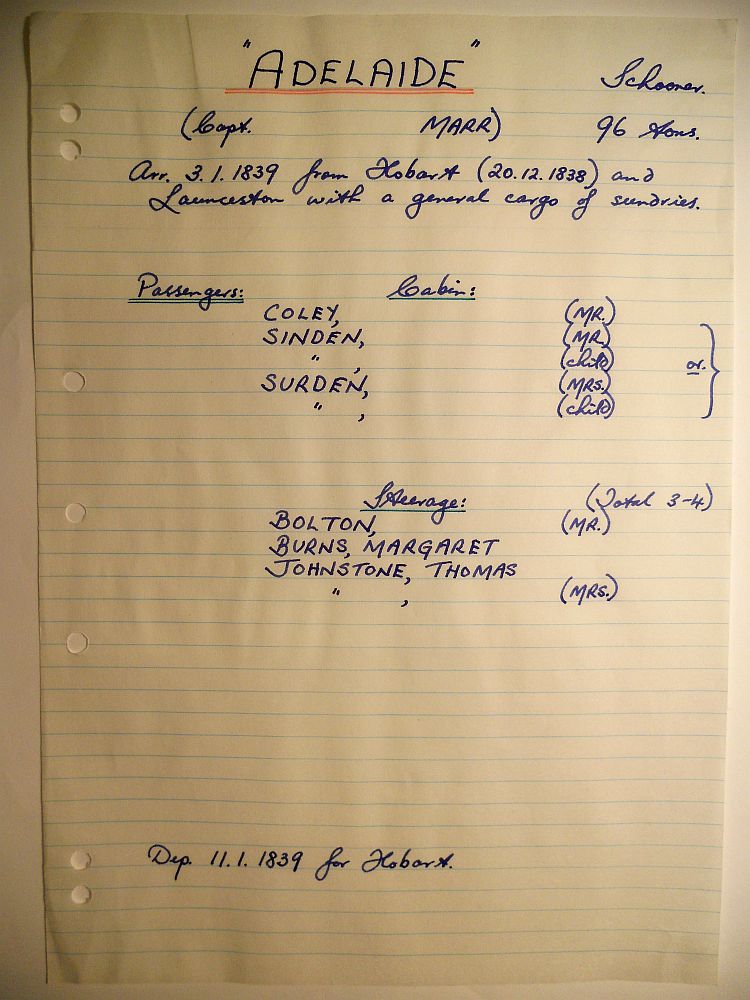 "ADELAIDE" Schooner.
(Capt. MARR) 96 tons.
Arr. 3.1.1839 from Hobart (20.12.1838) and
Launceston with a general cargo of sundries.
Passengers: Cabin:
COLEY, (MR.)
SINDEN, (MR.)
" , (child)
or.
SURDEN, (MRS.)
" , (child)
Steerage: (Total 3-4)
BOLTON, (MR.)
BURNS, MARGARET
JOHNSTONE, THOMAS
" , (MRS.)
Dep. 11.1.1839 for Hobart.